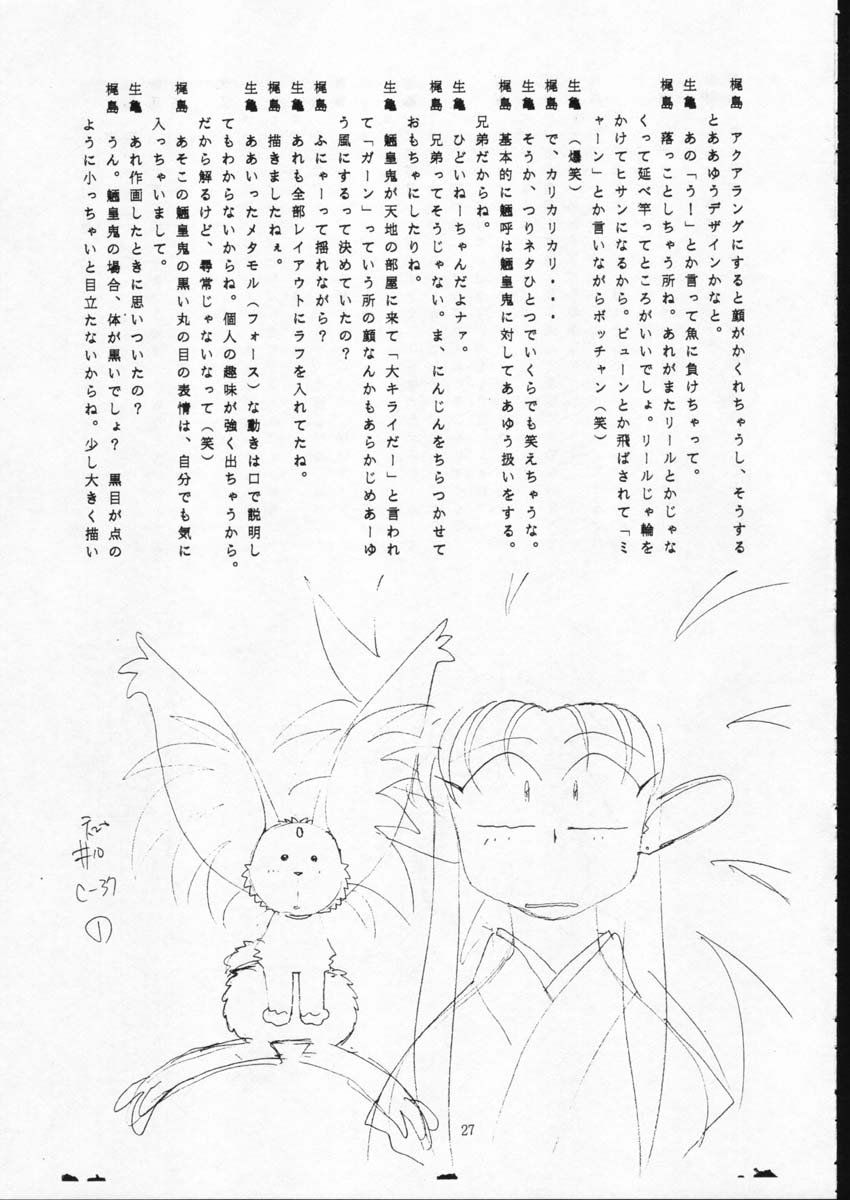 梶島　アクアラングにすると顔がかくれちゃうし、そうする
とああゆうデザインかなと。
生亀　あの「う！」とか言って魚に負けちゃって。
梶島　落っことしちゃう所ね。あれがまたリールとかじゃな
くって延べ竿ってところがいいでしょ。リールじゃ輪を
かけてヒサンになるから。ビューンとか飛ばされて「ミ
ャーン」とか言いながらボッチャン（笑）
生亀　（爆笑）
梶島　で、カリカリカリ・・・
生亀　そうか、つりネタひとつでいくらでも笑えちゃうな。
梶島　基本的に魎呼は魎皇鬼に対してああゆう扱いをする。
兄弟だからね。
生亀　ひどいねーちゃんだよナァ。
梶島　兄弟ってそうじゃない。ま、にんじんをちらつかせて
おもちゃにしたりね。
生亀　魎皇鬼が天地の部屋に来て「大キライだー」と言われ
て「ガーン」っていう所の顔なんかもあらかじめあーゆ
う風にするって決めていたの？
梶島　ふにゃーって揺れながら？
生亀　あれも全部レイアウトにラフを入れてたね。
梶島　描きましたねぇ。
生亀　ああいったメタモル（フォース）な動きは口で説明し
てもわからないからね。個人の趣味が強く出ちゃうから。
だから解るけど、尋常じゃないなって（笑）
梶島　あそこの魎皇鬼の黒い丸の目の表情は、自分でも気に
入っちゃいまして。
生亀　あれ作画したときに思いついたの？
梶島　うん。魎皇鬼の場合、体が黒いでしょ？　黒目が点の
ように小っちゃいと目立たないからね。少し大きく描い
#10
C-37
①
27